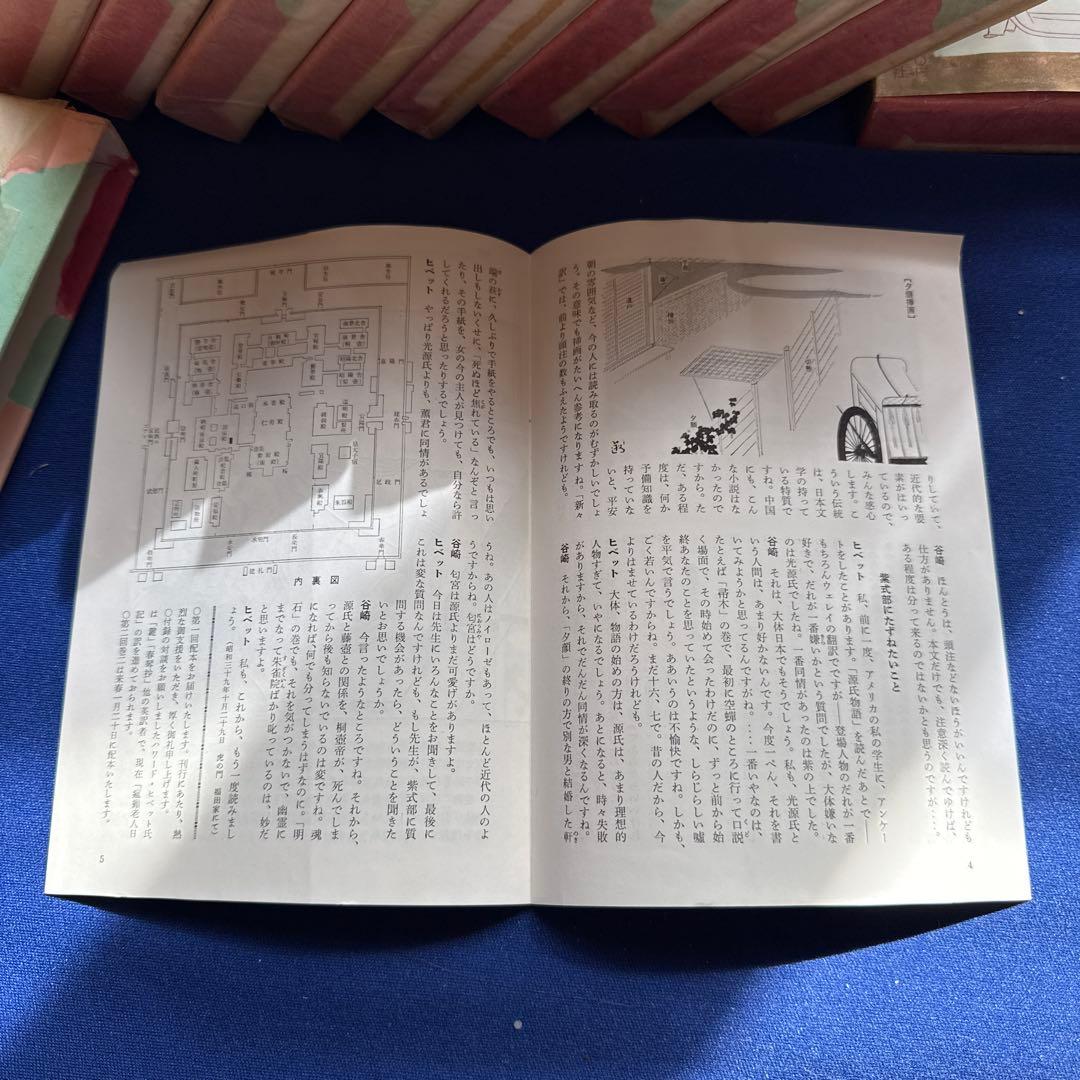 〔夕顔挿画〕
りしていて、
近代的な要
素がはいっ
ているので、
みんな感心
します。こ
ういう伝統
は、日本文
学の持って
いる特質で
すね。中国
にも、こん
な小説はな
かったので
すから。
だ、ある程
度は、何か
予備知識を
持っていな
いと、平安
朝の雰囲気など、今の人には読み取るのがむずかしいでしょ
う。その意味でも挿画がたいへん参考になりますね。「新々
訳」では、前より頭注の数もふえたようですけれども。
谷崎 ほんとうは、頭注などないほうがいいんですけれども
仕方がありません。本文だけでも、注意深く読んでゆけば、
ある程度は分って来るのではないかとも思うのですが……。
紫式部にたずねたいこと
ヒベット 私、前に一度、アメリカの私の学生に、アンケー
トをしたことがあります。『源氏物語』を読んだあとで――
もちろんウェレイの翻訳でですが――登場人物のだれが一番
好きで、だれが一番嫌いかという質問でしたが、大体嫌いな
のは光源氏でしたね。一番同情があったのは紫の上でした。
谷崎 それは、大体日本でもそうでしょう。私も、光源氏と
いう人間は、あまり好かないんです。今度一ぺん、それを書
いてみようかと思ってるんですがね。…一番いやなのは、
たとえば「帚木」の巻で、最初に空蟬のところに行って口説
く場面で、その時始めて会ったわけだのに、ずっと前から始
終あなたのことを思っていたというような、しらじらしい嘘
を平気で言うでしょう。ああいうのは不愉快ですね。しかも、
ごく若いんですからね。まだ十六、七で。昔の人だから、今
よりはませているわけだろうけれども。
ヒベット 大体、物語の始めの方は、源氏は、あまり理想的
人物すぎて、いやになるでしょう。あとになると、時々失敗
がありますから、それでだんだん同情が深くなるんですね。
谷崎 それから、「夕顔」の終りの方で別な男と結婚した軒
4
端の荻に、久しぶりで手紙をやるところでも、いつもは思い
出しもしないくせに、「死ぬほど焦れている」なんぞと言っ
たり、その手紙を、女の今の主人が見つけても、自分なら許
してくれるだろうと思ったりするでしょう。
ヒベット やっぱり光源氏よりも、薫君に同情があるでしょ
うね。あの人はノイローゼもあって、ほとんど近代の人のよ
うですからね。匂宮はどうですか。
谷崎 匂宮は源氏よりまだ可愛げがありますよ。
ヒベット 今日は先生にいろんなことをお聞きして、最後に
これは変な質問なんですけれども、もし先生が、紫式部に質
問する機会があったら、どういうことを聞きた
いとお思いでしょうか。
谷崎 今言ったようなところですね。それから、
源氏と藤壺との関係を、桐壺帝が、死んでしま
ってから後も知らないでいるのは変ですね。魂
になれば、何でも分ってしまうはずなのに。「明
石」の巻でも、それを気がつかないで、幽霊に
までなって朱雀院ばかり叱っているのは、妙だ
と思いますよ。
ヒベット 私も、これから、もう一度読みまし
ょう。
(昭和三十九年十月二十九日 虎の門 福田家にて)
内裏図
建礼門
仁寿殿
○第一回配本をお届けいたします。刊行にあたり、熱
烈な御支援をいただき、厚く御礼申し上げます。
○付録の対談をお願いしましたハワード・ヒベット氏
は、『鍵』『春琴抄』他の英訳者で、現在『瘋癲老人日
記』の訳を進めておられます。
○第二回巻二は来春一月二十日に配本いたします。
5